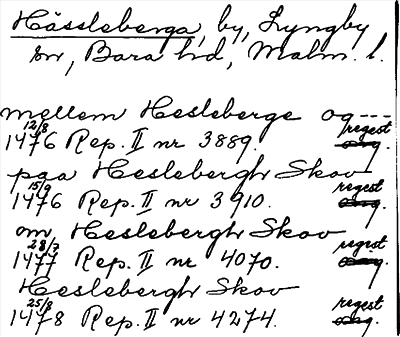 Hässleberga, by, Lyngby
sn, Bara hd, Malm. l.
mellem Hesleberge og---
12/8 regest
1476 Rep. II nr 3889. orig.
paa Heslebergh Skov
15/9 regest
1476 Rep. II nr 3910. orig.
om Heslebergh Skov
28/7 regist
1477 Rep. II nr 4070. orig.
Heslebergh Skov
25/8 regest
1478 Rep. II nr 4274. orig.